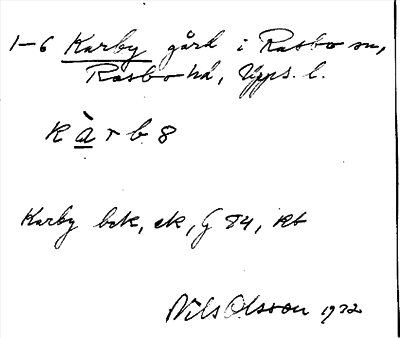 1-6 Karby gård i Rasbo sn,
Rasbo hd, Upps. l.
k à r b 8
Karby bek, ek, G 84, kb
Nils Olsson 1932